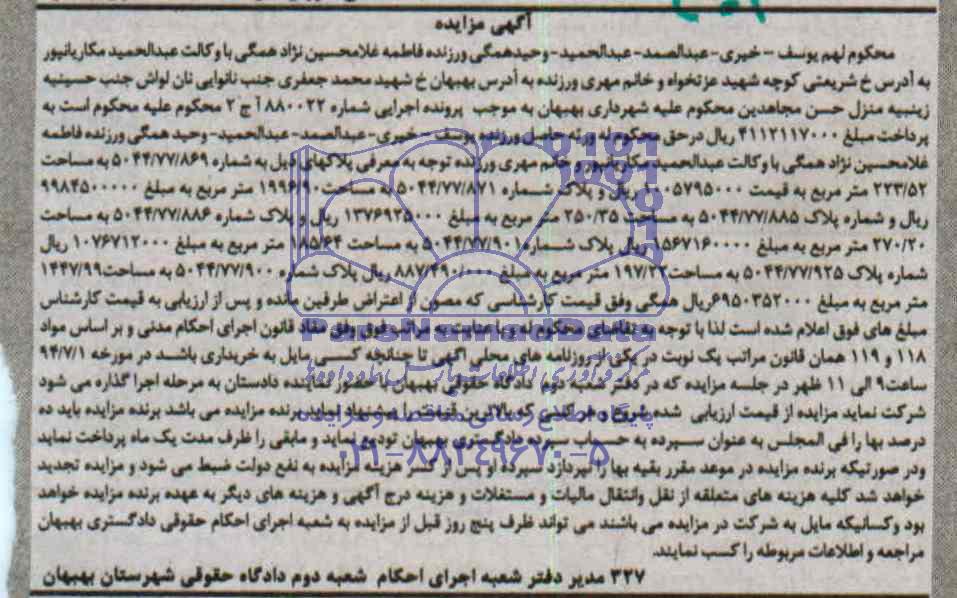 آگهی مزایده
محکوم لهم یوسف - خیری- عبدالصمد- عبدالحمید- وحیدهمگی ورزنده فاطمه غلامحسین نژاد همگی با وکالت عبدالحمید مکاریانپور
به آدرس خ شریعتی کوچه شهید عزتخواه و خانم مهری ورزنده به آدرس بهبهان خ شهید محمد جعفری جنب نانوایی نان لواش جنب حسینیه
زینبیه منزل حسن مجاهدین محکوم علیه شهرداری بهبهان به موجب پرونده اجرایی شماره ۸۸۰۰۲۲ آ ج ۲ محکوم علیه محکوم است به
پرداخت مبلغ ۴۱۱۲۱۱۷۰۰۰ ریال درحق محکوم له ورثه حاصل ورزنده یوسف - خیری- عبدالصمد- عبدالحمید- وحید همگی ورزنده فاطمه
غلامحسین نژاد همگی با وکالت عبدالحمید مکاریانپور و خانم مهری ورزنده توجه به معرفی پلاکهای ذیل به شماره ۵۰۴۴/۷۷/۸۶۹ به مساحت
۲۲۳/۵۲ متر مربع به قیمت ۱۰۰۵۷۹۵۰۰۰ ریال و پلاک شماره ۵۰۴۴/۷۷/۸۷۱ به مساحت ۱۹۹۶/۹۰ متر مربع به مبلغ ۹۹۸۴۵۰۰۰۰۰
ریال و شماره پلاک ۵۰۴۴/۷۷/۸۸۵ به مساحت ۲۵۰/۳۵ متر مربع به مبلغ ۱۳۷۶۹۲۵۰۰۰ ریال و پلاک شماره ۵۰۴۴/۷۷/۸۸۶ به مساحت
۲۷۰/۲۰ متر مربع به مبلغ ۱۵۶۷۱۶۰۰۰۰ ریال پلاک شماره ۵۰۴۴/۷۷/۹۰۱ به مساحت ۱۸۵/۶۴ متر مربع به مبلغ ۱۰۷۶۷۱۲۰۰۰ ریال
شماره پلاک ۵۰۴۴/۷۷/۹۲۵ به مساحت ۱۹۷/۲۲ متر مربع به مبلغ ۸۸۷/۴۹۰/۰۰۰ ریال پلاک شماره ۵۰۴۴/۷۷/۹۰۰ به مساحت ۱۴۴۷/۹۹
متر مربع به مبلغ ۶۹۵۰۳۵۲۰۰۰ ریال همگی وفق قیمت کارشناسی که مصون از اعتراض طرفین مانده و پس از ارزیابی به قیمت کارشناس
مبلغ های فوق اعلام شده است لذا با توجه به تقاضای محکوم له و با عنایت به مراتب فوق وفق مفاد قانون اجرای احکام مدنی و بر اساس مواد
۱۱۸ و ۱۱۹ همان قانون مراتب یک نوبت در یکی از روزنامه های محلی آگهی تا چنانچه کسی مایل به خریداری باشد در مورخه ۹۴/۷/۱
ساعت ۹ الی ۱۱ ظهر در جلسه مزایده که در دفتر شعبه دوم دادگاه حقوقی بهبهان با حضور نماینده دادستان به مرحله اجرا گذاره می شود
شرکت نماید مزایده از قیمت ارزیابی شده شروع و هر کسی که بالاترین قیمت را پیشنهاد نماید برنده مزایده می باشد برنده مزایده باید ده
درصد بها را فی المجلس به عنوان سپرده به حساب سپرده دادگستری بهبهان تودیع نماید و مابقی را ظرف مدت یک ماه پرداخت نماید
ودر صورتیکه برنده مزایده در موعد مقرر بقیه بها را نپردازد سپرده او پس از کسر هزینه مزایده به نفع دولت ضبط می شود و مزایده تجدید
خواهد شد کلیه هزینه های متعلقه از نقل وانتقال مالیات و مستغلات و هزینه درج آگهی و هزینه های دیگر به عهده برنده مزایده خواهد
بود وکسانیکه مایل به شرکت در مزایده می باشند می تواند ظرف پنج روز قبل از مزایده به شعبه اجرای احکام حقوقی دادگستری بهبهان
مراجعه و اطلاعات مربوطه را کسب نمایند.
۳۲۷ مدیر دفتر شعبه اجرای احکام شعبه دوم دادگاه حقوقی شهرستان بهبهان
ParsNamadData
مرکز فرآوری اطلاعات پارس نماد داده ها
پایگاه اطلاع رسانی مناقصه و مزایده
۰۲۱-۸۸۳۴۹۶۷۰-۵